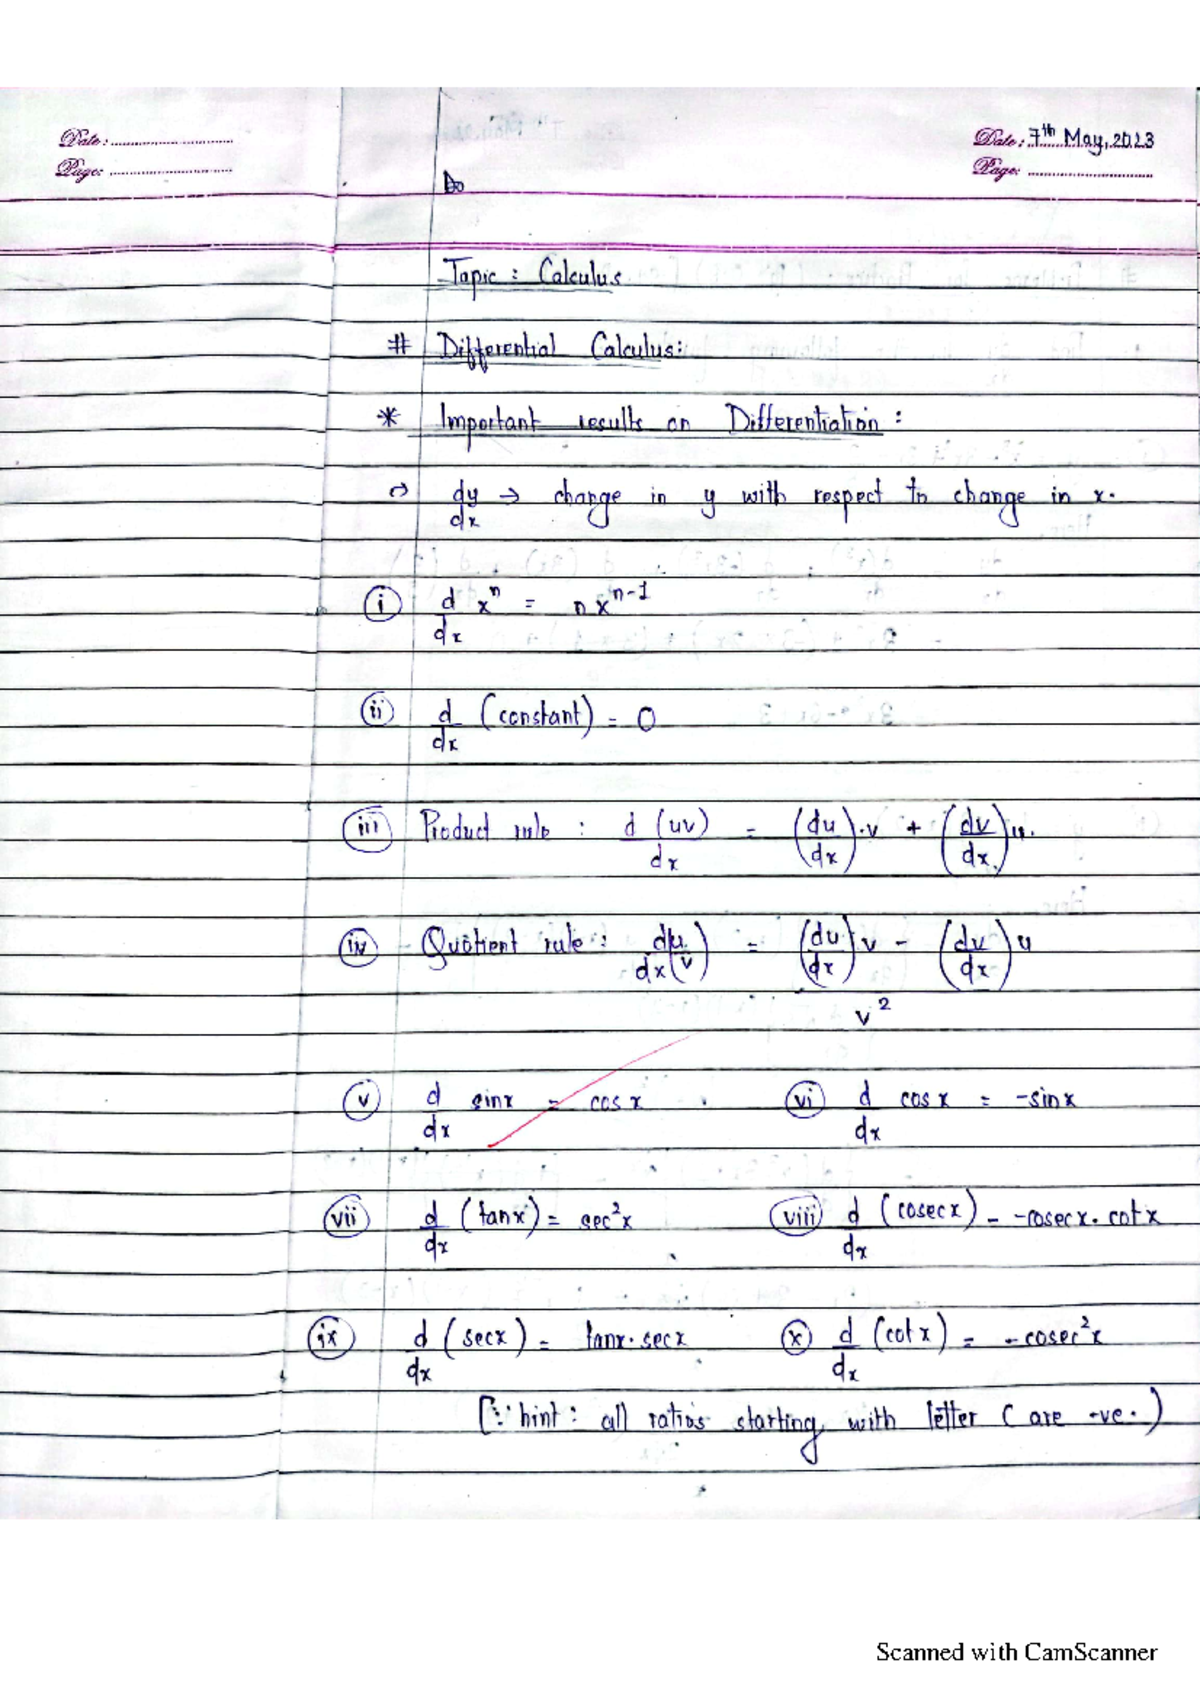 Date: ........................
Page: ........................
Date: 7th May, 2023
Page: ........................
Do
Topic : Calculus
# Differential Calculus:
* Important results on Differentiation :
→ dy/dx → change in y with respect to change in x.
(i) d/dx xⁿ = nxⁿ⁻¹
(ii) d/dx (constant) = 0
(iii) Product rule : d(uv)/dx = (du/dx).v + (dv/dx)u.
(iv) Quotient rule : d/dx(u/v) = ((du/dx)v - (dv/dx)u)/v²
(v) d/dx sinx = cosx (vi) d/dx cosx = -sinx
(vii) d/dx (tanx) = sec²x (viii) d/dx (cosecx) = -cosecx.cotx
(ix) d/dx (secx) = tanx.secx (x) d/dx (cotx) = -cosec²x
(∵ hint : all ratios starting with letter C are -ve.)
Scanned with CamScanner